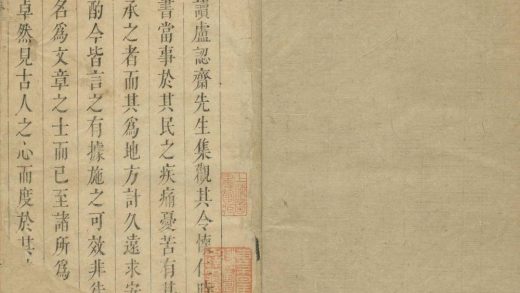 讀盧認齋先生集觀其令懷仁時
書當事於其民之疾痛憂苦有其
承之者而其爲地方計久遠求安
酌今皆言之有據施之可效非徒
名爲文章之士而已至諸所爲
卓然見古人之心而度於其